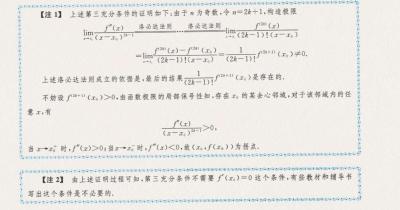 【注1】 上述第三充分条件的证明如下:由于 n 为奇数,令 n=2k+1,构造极限
lim_{x→x₀} f″(x)/(x-x₀)^{2k-1} 洛必达法则 …… 洛必达法则 lim_{x→x₀} f^{(2k)}(x)/((2k-1)!(x-x₀))
=lim_{x→x₀} (f^{(2k)}(x)-f^{(2k)}(x₀))/((2k-1)!(x-x₀))=1/(2k-1)! f^{(2k+1)}(x₀)≠0.
上述洛必达法则成立的依据是,最后的结果 1/(2k-1)! f^{(2k+1)}(x₀)是存在的.
不妨设 f^{(2k+1)}(x₀)>0,由函数极限的局部保号性知,存在 x₀ 的某去心邻域,对于该邻域内的任
意 x,有
f″(x)/(x-x₀)^{2k-1}>0,
当 x→x₀⁺ 时,f″(x)>0;当 x→x₀⁻ 时,f″(x)<0,故(x₀,f(x₀))为拐点.
【注2】 由上述证明过程可知,第三充分条件不需要 f′(x₀)=0 这个条件,有些教材和辅导书
写出这个条件是不必要的.